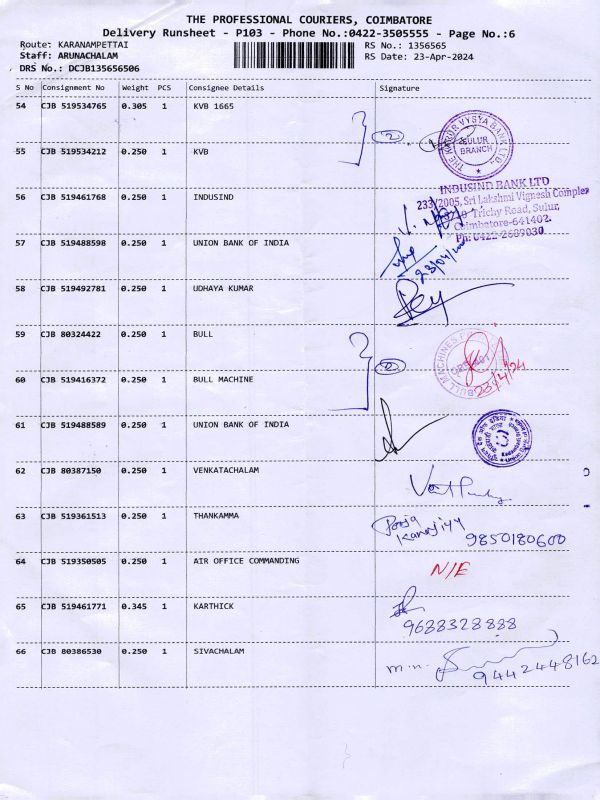 THE PROFESSIONAL COURIERS, COIMBATORE
Delivery Runsheet - P103 - Phone No.:0422-3505555 - Page No.:6
Route: KARANAMPETTAI
RS No.: 1356565
Staff: ARUNACHALAM
RS Date: 23-Apr-2024
DRS No.: DCJB135656506
S No Consignment No Weight PCS Consignee Details Signature
54 CJB 519534765 0.305 1 KVB 1665
2
THE KARUR VYSYA BANK LTD.
SULUR
BRANCH
55 CJB 519534212 0.250 1 KVB
56 CJB 519461768 0.250 1 INDUSIND
INDUSIND BANK LTD
233/2005, Sri Lakshmi Vignesh Complex
Trichy Road, Sulur,
Coimbatore-641402.
Ph: 0422-2689030
57 CJB 519488598 0.250 1 UNION BANK OF INDIA
23/04/
58 CJB 519492781 0.250 1 UDHAYA KUMAR
59 CJB 80324422 0.250 1 BULL
BULL MACHINES
23/4/24
60 CJB 519416372 0.250 1 BULL MACHINE
61 CJB 519488589 0.250 1 UNION BANK OF INDIA
62 CJB 80387150 0.250 1 VENKATACHALAM
63 CJB 519361513 0.250 1 THANKAMMA
Pooja
9850180600
64 CJB 519350505 0.250 1 AIR OFFICE COMMANDING
N/E
65 CJB 519461771 0.345 1 KARTHICK
9688328888
66 CJB 80386530 0.250 1 SIVACHALAM
m.n.
9442448162